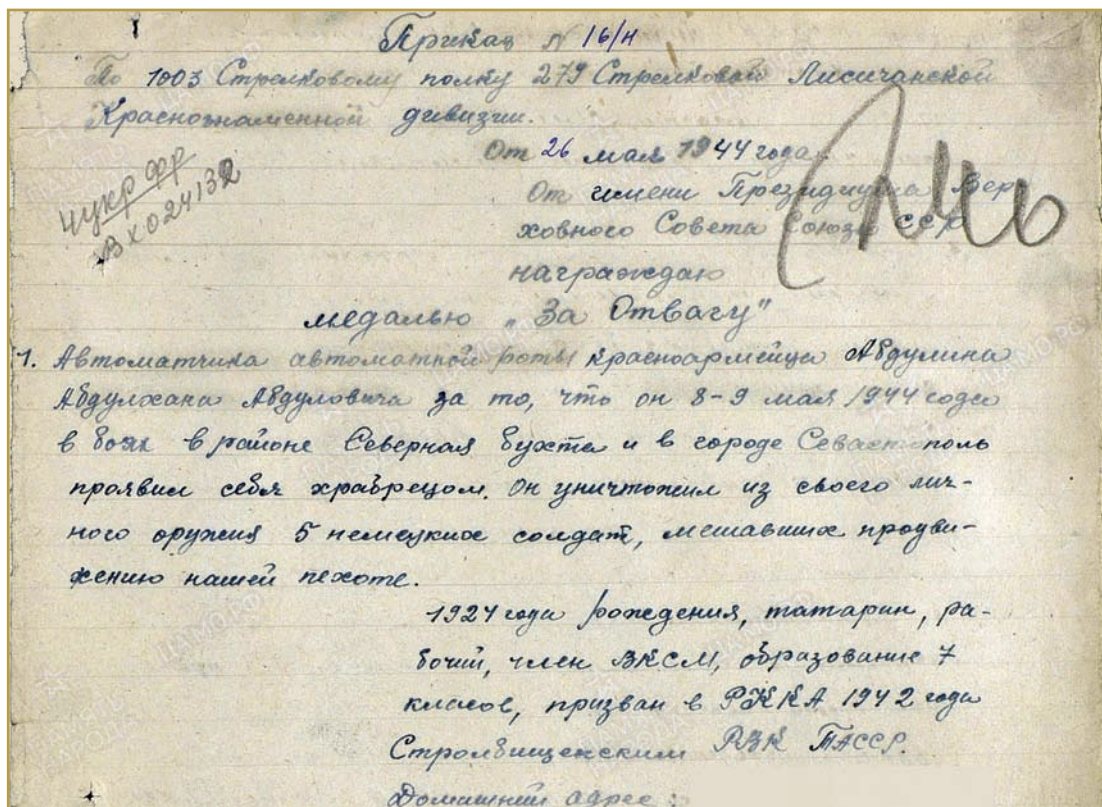 Приказ N 16/н
По 1003 Стрелковому полку 279 Стрелковой Лисичанской
Краснознаменной дивизии.
От 26 мая 1944 года.
4 укр фр
Вх 024132
От имени Президиума Вер
ховного Совета Союза ССР
награждаю
медалью "За Отвагу"
1. Автоматчика автоматной роты красноармейца Абдулина
Абдулхана Абдуловича за то, что он 8-9 мая 1944 года
в боях в районе Северная бухта и в городе Севастополь
проявил себя храбрецом. Он уничтожил из своего лич-
ного оружия 5 немецких солдат, мешавших продви-
жению нашей пехоте.
1924 года рождения, татарин, ра-
бочий, член ВКСМ, образование 7
класов, призван в РККА 1942 года
РВК ТАССР.
Домашний адрес: